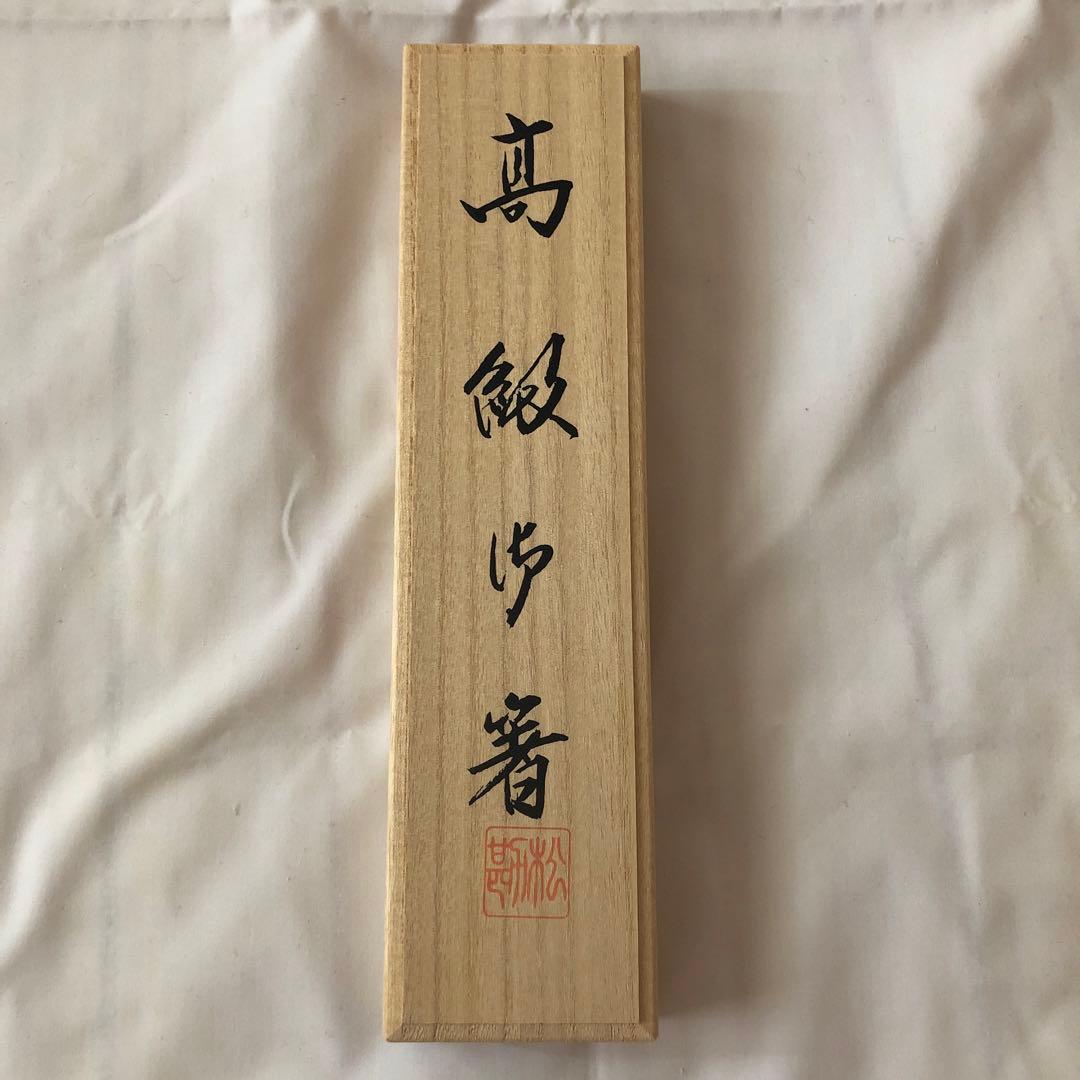 髙級御箸
松勘